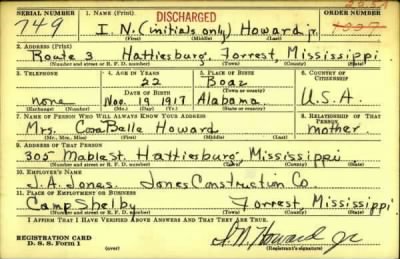 SERIAL NUMBER
749
1. NAME (Print)
DISCHARGED
I. N. (initials only) Howard jr.
(First) (Middle) (Last)
ORDER NUMBER
2. ADDRESS (Print)
Route 3 Hattiesburg, Forrest, Mississippi
(Number and street or R. F. D. number) (Town) (County) (State)
3. TELEPHONE
none
4. AGE IN YEARS
22
DATE OF BIRTH
Nov. 19 1917
(Mo.) (Day) (Yr.)
5. PLACE OF BIRTH
Boaz
(Town or county)
Alabama
(State or country)
6. COUNTRY OF CITIZENSHIP
U.S.A.
7. NAME OF PERSON WHO WILL ALWAYS KNOW YOUR ADDRESS
Mrs. Cora Belle Howard
(Mr., Mrs., Miss) (First) (Middle) (Last)
8. RELATIONSHIP OF THAT PERSON
mother
9. ADDRESS OF THAT PERSON
305 Mable St. Hattiesburg, Mississippi
(Number and street or R. F. D. number) (Town) (County) (State)
10. EMPLOYER'S NAME
J. A. Jones Jones Construction Co.
11. PLACE OF EMPLOYMENT OR BUSINESS
Camp Shelby Forrest, Mississippi
(Number and street or R. F. D. number) (Town) (County) (State)
I AFFIRM THAT I HAVE VERIFIED ABOVE ANSWERS AND THAT THEY ARE TRUE.
REGISTRATION CARD
D. S. S. Form 1
I. N. Howard Jr
(Registrant's signature)